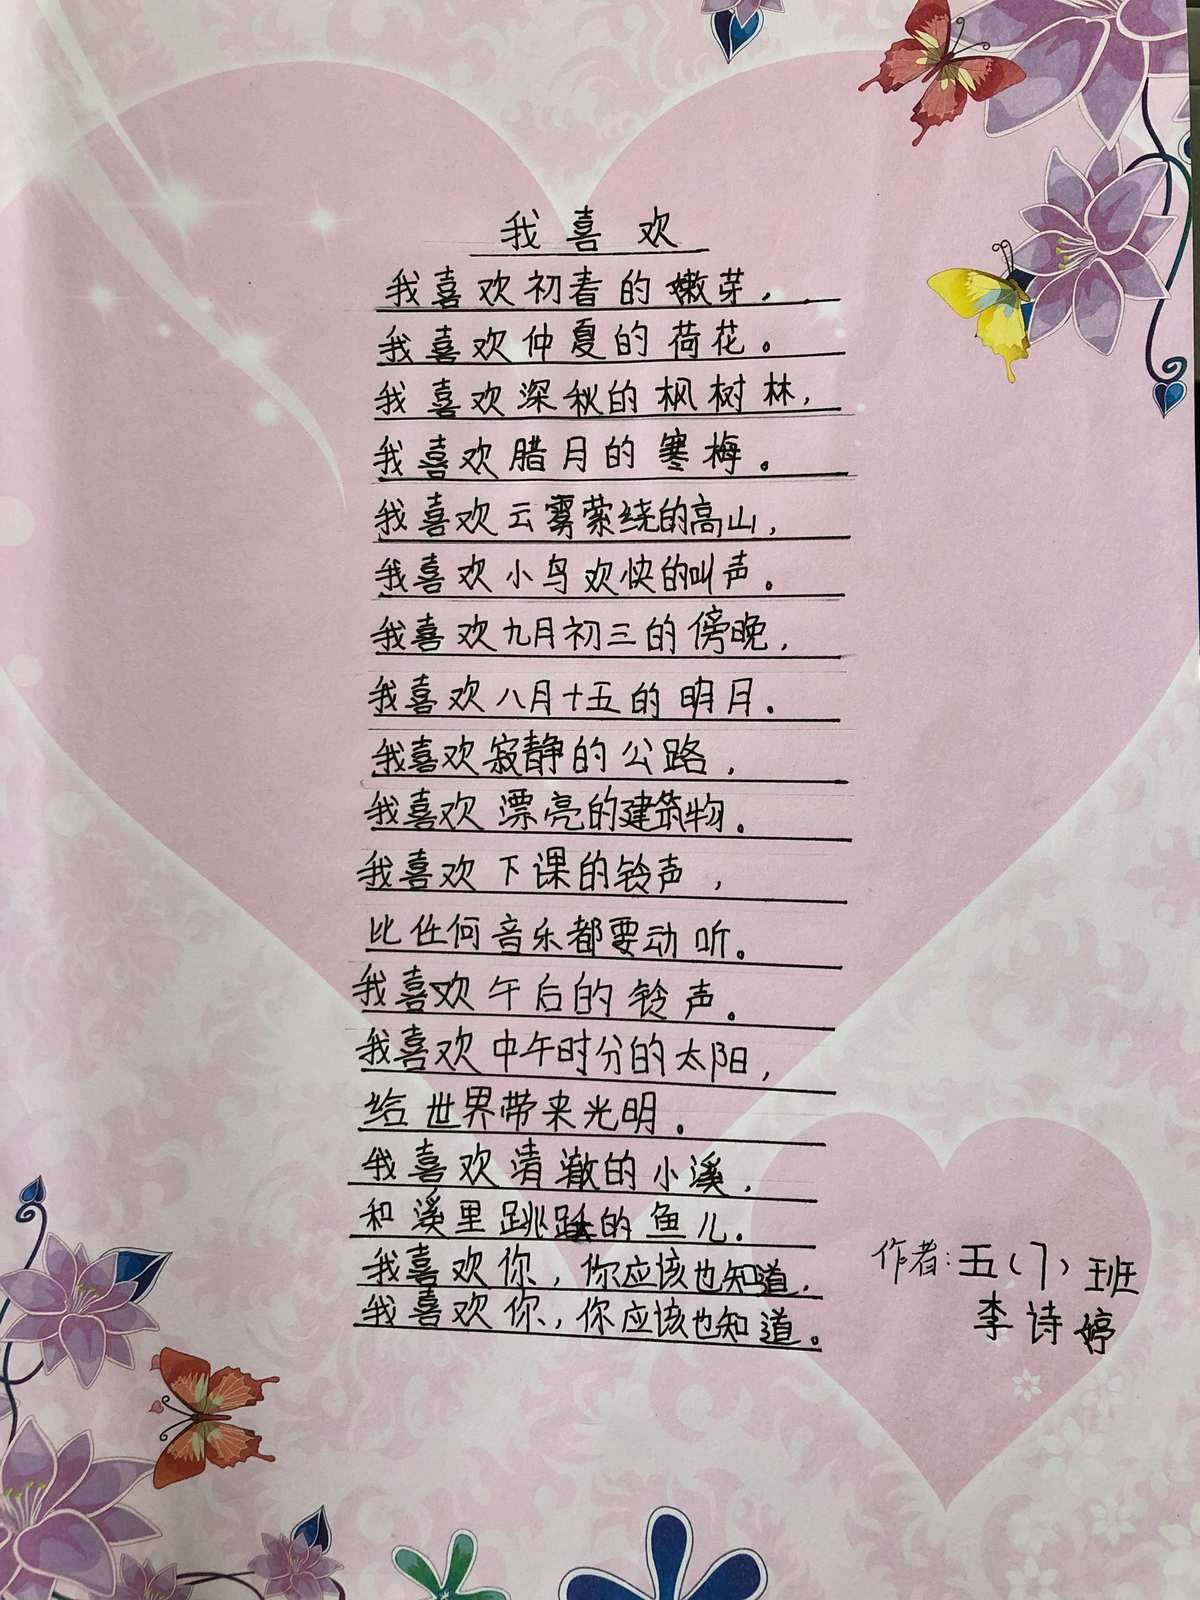 我喜欢
我喜欢初春的嫩芽，
我喜欢仲夏的荷花。
我喜欢深秋的枫树林，
我喜欢腊月的寒梅。
我喜欢云雾萦绕的高山，
我喜欢小鸟欢快的叫声。
我喜欢九月初三的傍晚，
我喜欢八月十五的明月。
我喜欢寂静的公路，
我喜欢漂亮的建筑物。
我喜欢下课的铃声，
比任何音乐都要动听。
我喜欢午后的铃声。
我喜欢中午时分的太阳，
给世界带来光明。
我喜欢清澈的小溪，
和溪里跳跃的鱼儿。
我喜欢你，你应该也知道，
我喜欢你，你应该也知道。
作者：五（7）班
李诗婷